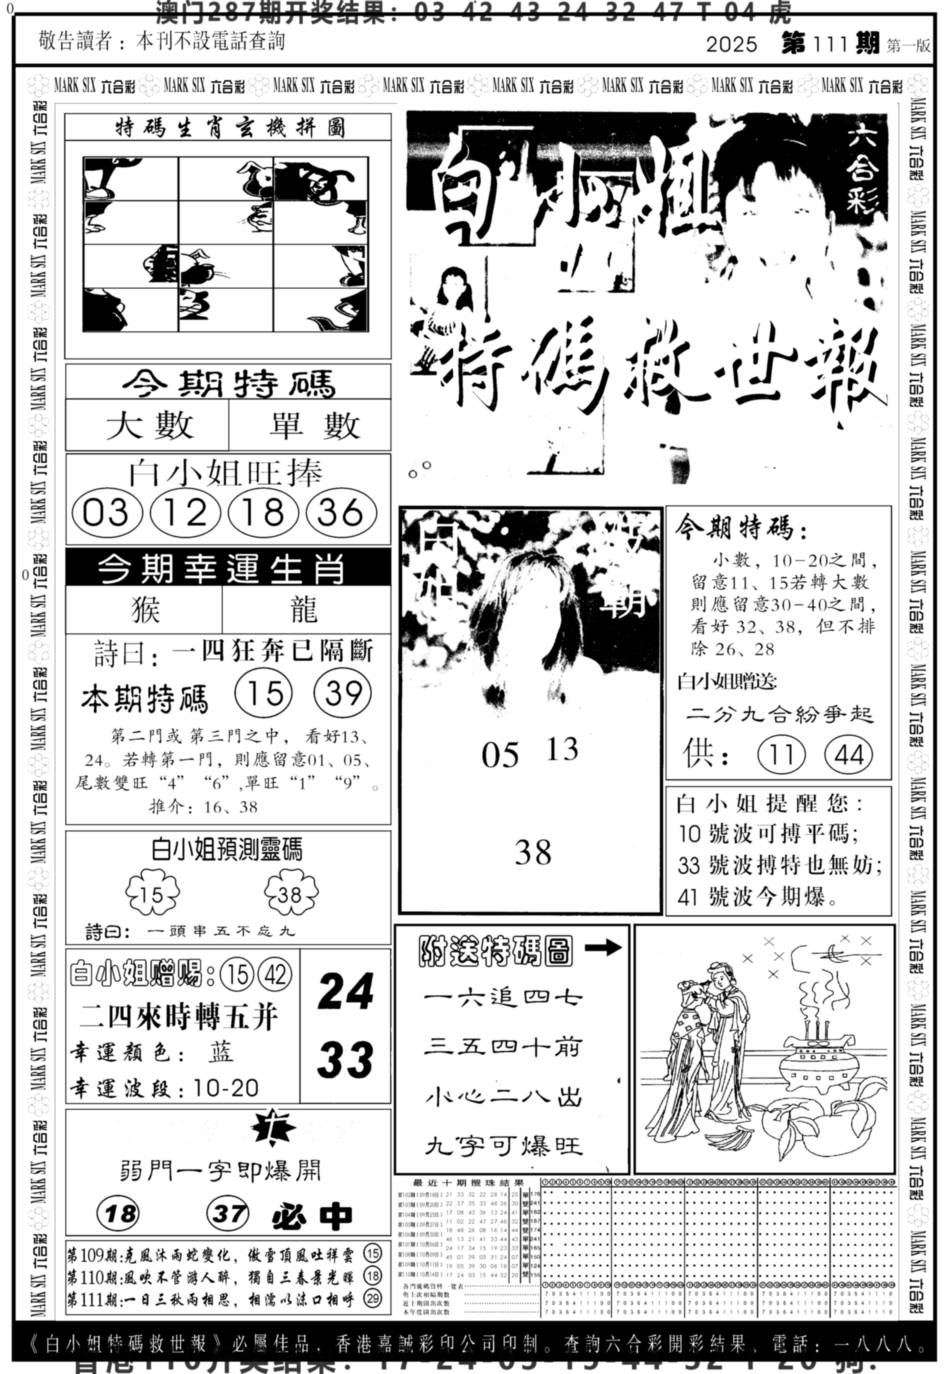 澳门287期开奖结果：03 42 43 24 32 47 T 04 虎
敬告讀者：本刊不設電話查詢
2025 第111期 第一版
MARK SIX 六合彩 MARK SIX 六合彩 MARK SIX 六合彩 MARK SIX 六合彩 MARK SIX 六合彩 MARK SIX 六合彩 MARK SIX 六合彩 MARK SIX 六合彩
特碼生肖玄機拼圖
六合彩
白小姐
特碼救世報
今期特碼
大數 單數
白小姐旺捧
03 12 18 36
今期幸運生肖
猴 龍
詩曰：一四狂奔已隔斷
本期特碼 15 39
第二門或第三門之中，看好13、
24。若轉第一門，則應留意01、05、
尾數雙旺“4”“6”,單旺“1”“9”。
推介：16、38
白小姐預測靈碼
15 38
詩曰：一頭串五不忘九
白小姐赠赐：15 42
二四來時轉五并
幸運顏色：蓝
幸運波段：10-20
24
33
弱門一字即爆開
18 37 必中
第109期:克風沐雨蛇變化，傲雪頂風吐祥雲 15
第110期:風吹不管游人醉，獨自三春景光暉 18
第111期:一日三秋兩相思，相濡以沫口相呼 29
05 13
38
今期特碼：
小數，10-20之間，
留意11、15若轉大數
則應留意30-40之間，
看好 32、38，但不排
除 26、28
白小姐贈送:
二分九合紛爭起
供：11 44
白小姐提醒您：
10 號波可搏平碼;
33 號波搏特也無妨;
41 號波今期爆。
附送特碼圖
一六追四七
三五四十前
小心二八出
九字可爆旺
最近十期攪珠結果
《白小姐特碼救世報》必屬佳品，香港嘉誠彩印公司印制。查詢六合彩開彩結果，電話：一八八八。
香港110开奖结果：17-24-03-15-44-32 T 20 狗.